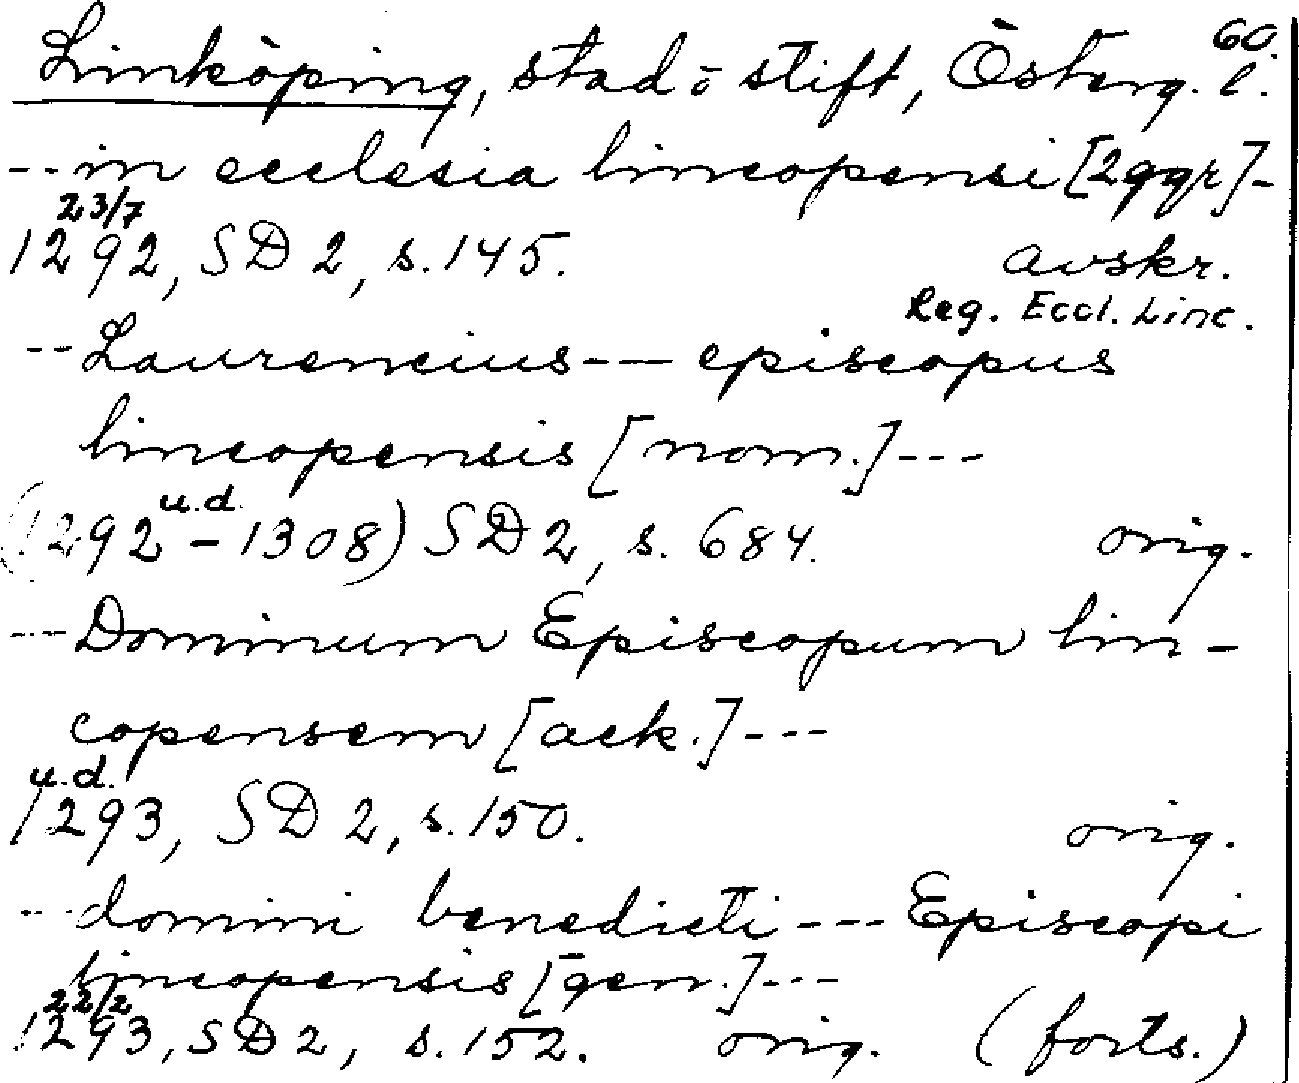 60.
Linköping, stad o stift, Österg. l.
--in ecclesia lincopensi [2ggr]-
23/7
1292, SD 2, s. 145. avskr.
Reg. Eccl. Linc.
--Laurencius--- episcopus
lincopensis [nom.]---
u.d.
(1292 - 1308) SD 2, s. 684. orig.
---Dominum Episcopum lin-
copensem [ack.]---
u.d.
1293, SD 2, s. 150. orig.
---domini benedicti --- Episcopi
lincopensis [gen.]---
22/2
1293, SD 2, s. 152. orig. (forts.)